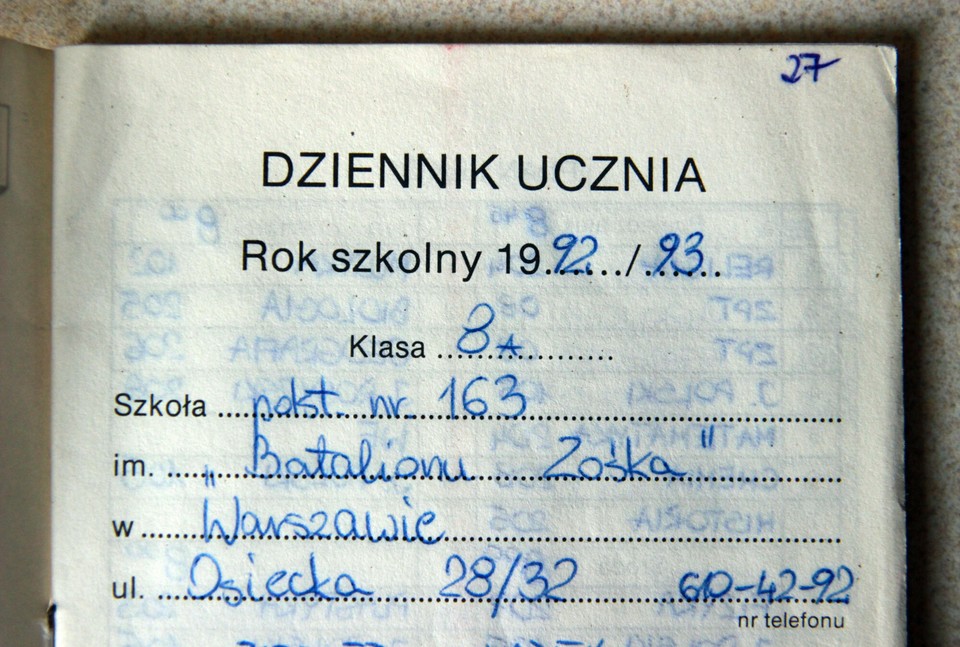 27
DZIENNIK UCZNIA
Rok szkolny 1992/93
Klasa 8A
Szkoła podst. nr. 163
im. "Batalionu Zośka"
w Warszawie
ul. Osiecka 28/32 610-42-92
nr telefonu